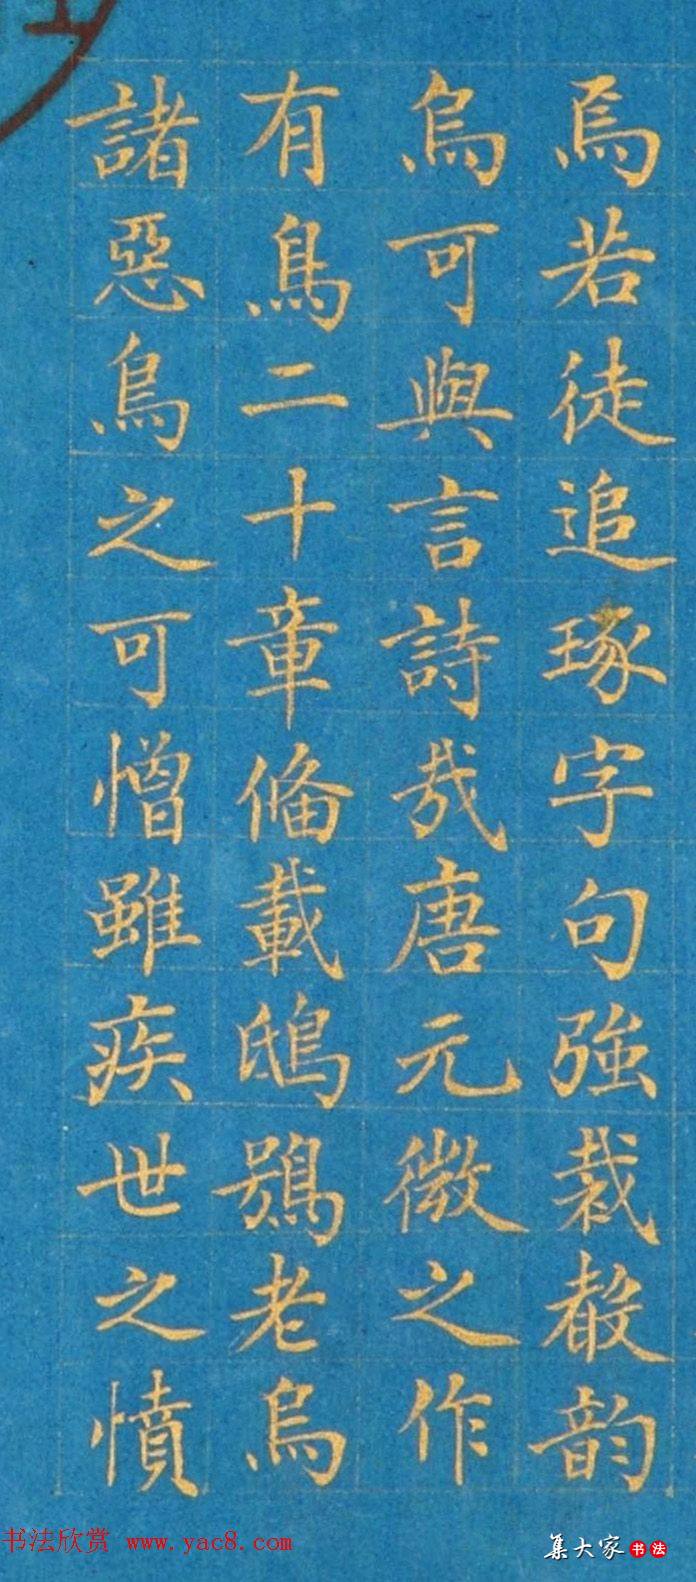 焉若徒追琢字句強裁韵
烏可與言詩哉唐元微之作
有鳥二十章俻載鴟鴞老烏
諸惡鳥之可憎雖疾世之憤
书法欣赏 www.yac8.com
集大家书法